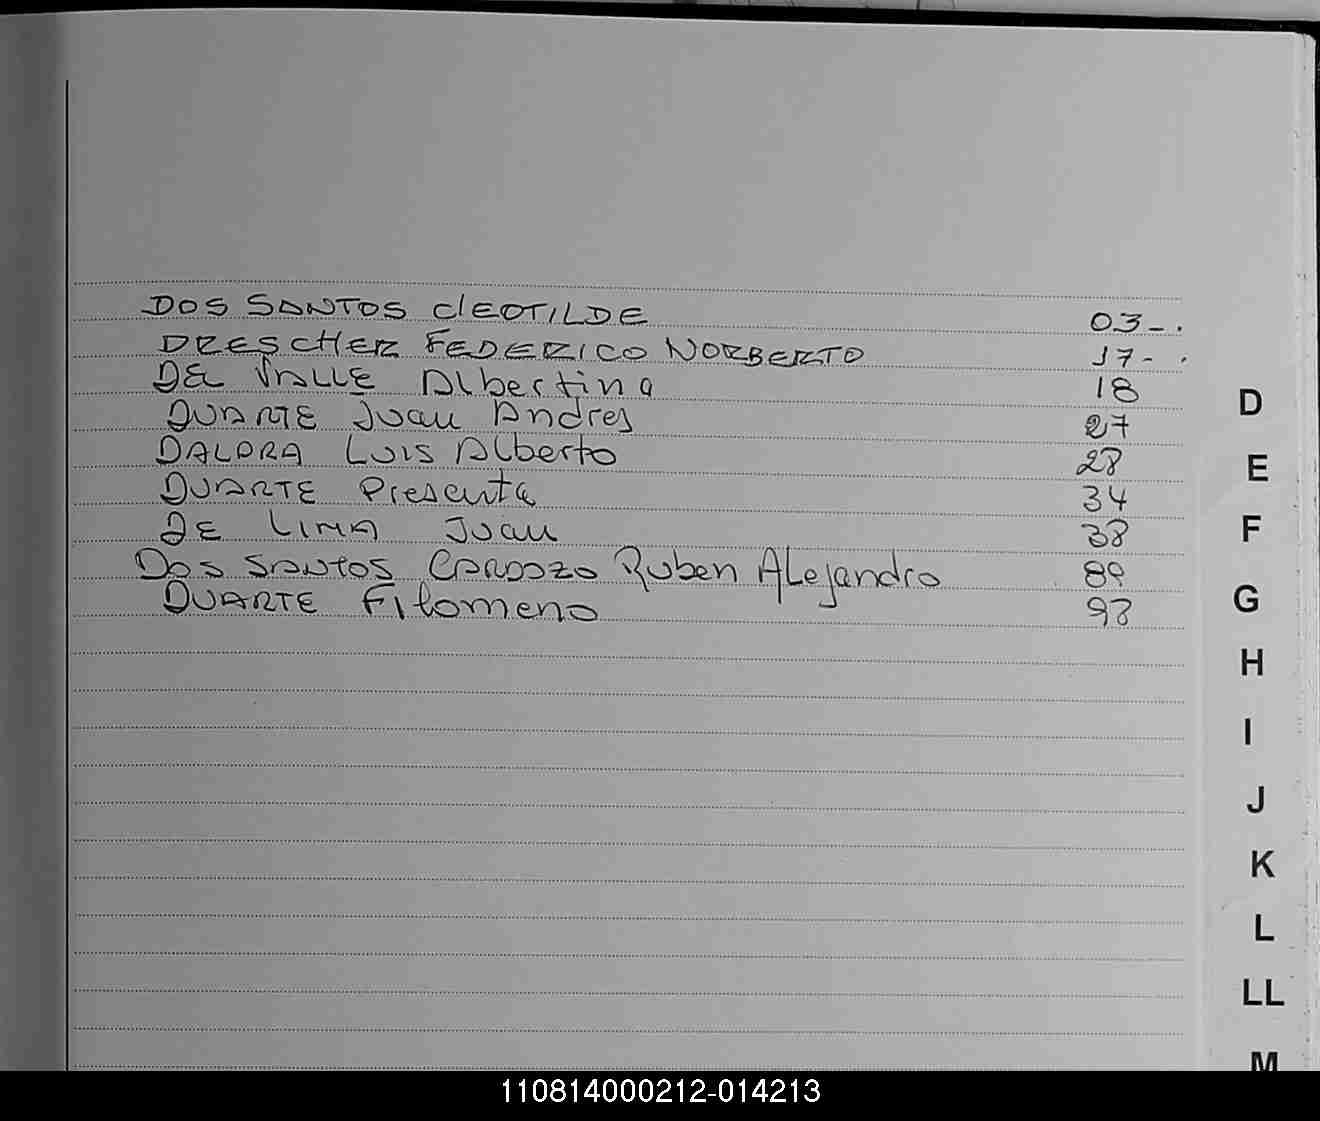 DOS SANTOS ClEOTILDE 03-.
DRESCHER FEDERICO NORBERTO 17-.
DEL VALLE Albertina 18
DUARTE Juan Andres 27
DALDRA LUIS Alberto 28
DUARTE Presenta 34
DE LIMA Juan 38
DOS SANTOS CARDOZO Ruben Alejandro 89
DUARTE Filomeno 98
D
E
F
G
H
I
J
K
L
LL
M
110814000212-014213